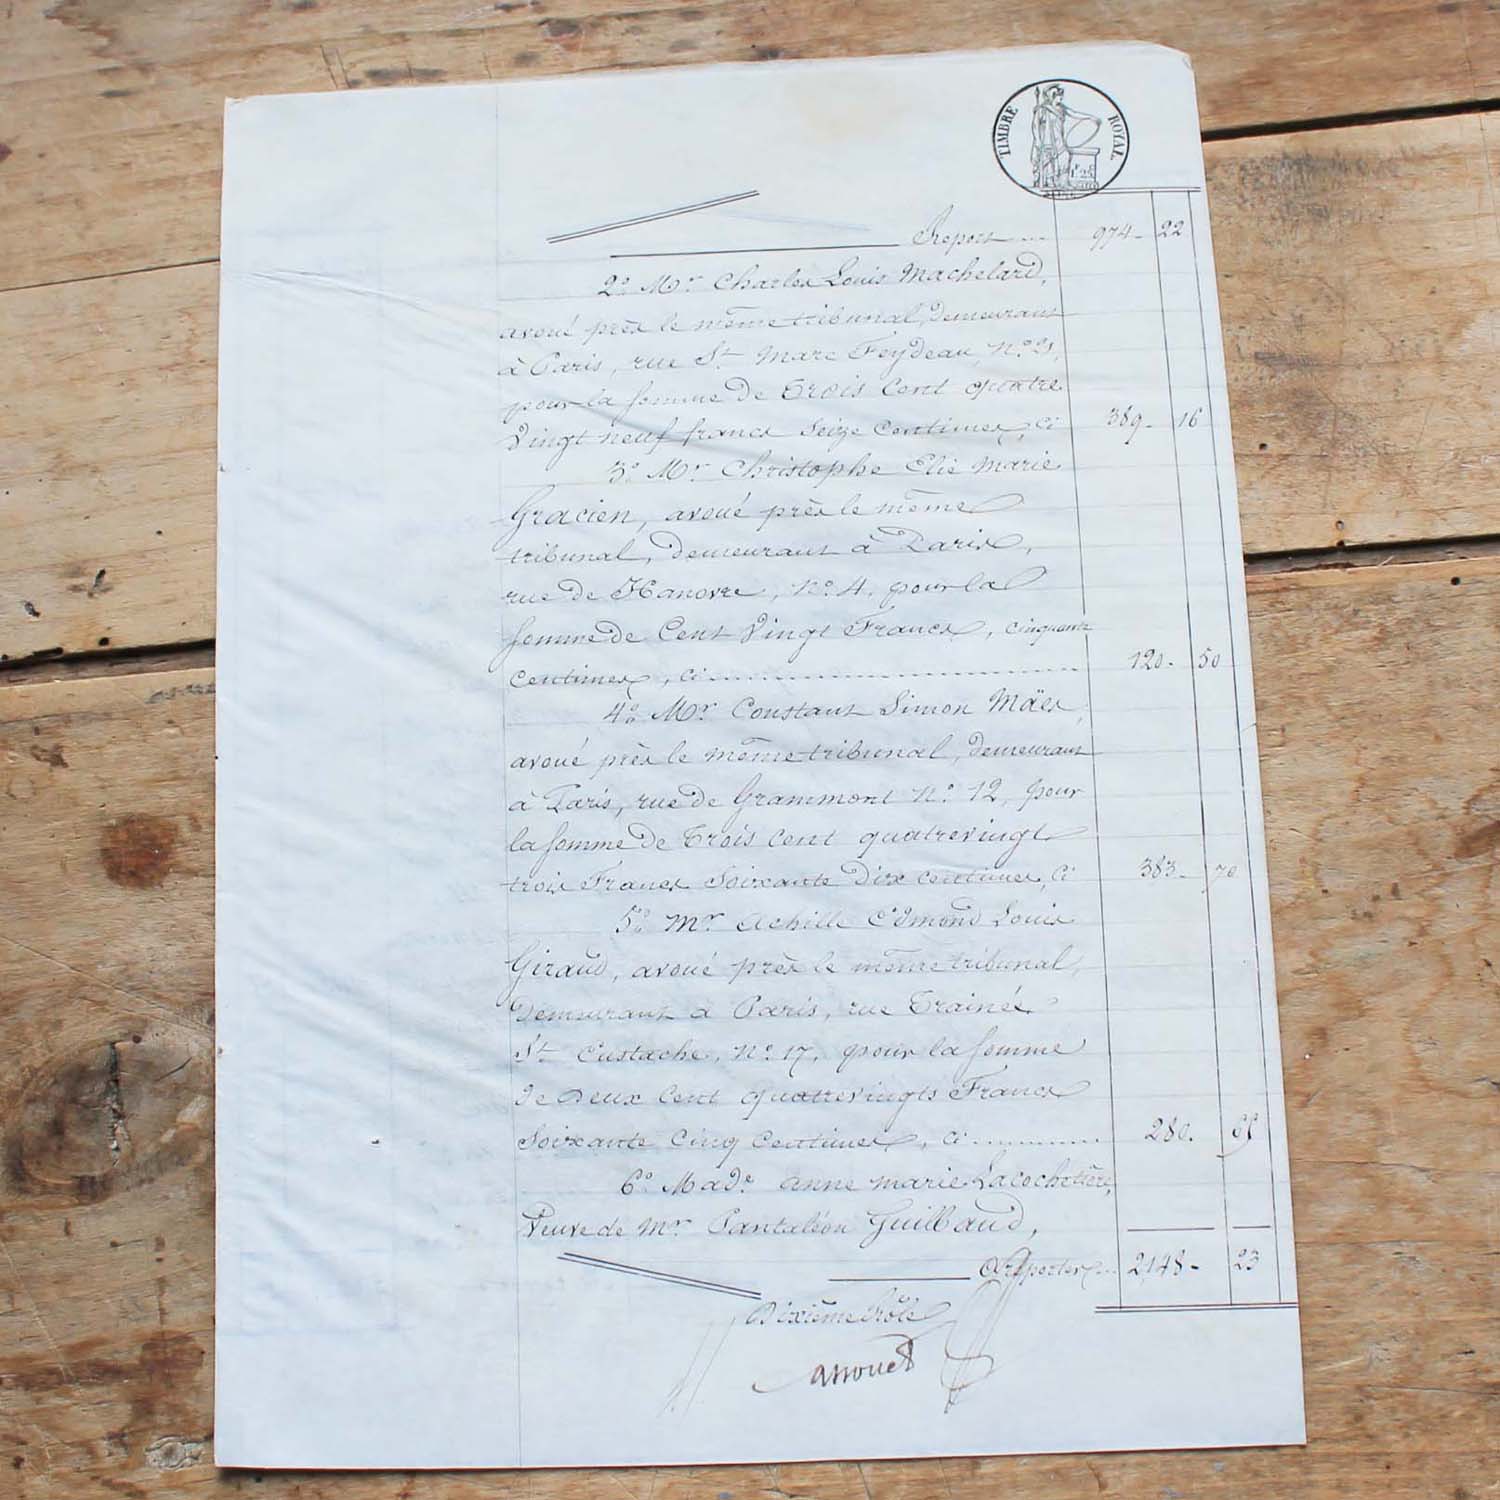 TIMBRE ROYAL
1F 25
Report 974 22
2° Mr Charles Louis Machelard,
avoué près le même tribunal, demeurant
à Paris, rue St Marc Feydeau, n° 21,
pour la somme de Trois Cent quatre
Vingt neuf francs Seize Centimes, ci 389 16
3° Mr Christophe Elie Marie
Gracien, avoué près le même
tribunal, demeurant à Paris,
rue de Hanovre, n° 4, pour la
somme de Cent Vingt Francs, cinquante
Centimes, ci 120 50
4° Mr Constant Simon Mäes,
avoué près le même tribunal, demeurant
à Paris, rue de Grammont n° 12, pour
la somme de Trois Cent quatrevingt
trois Francs Soixante Dix centimes, Ci 383 70
5° Mr Achille Edmond Louis
Giraud, avoué près le même tribunal,
Demeurant à Paris, rue Trainée
St Eustache, n° 17, pour la somme
de Deux Cent quatrevingts Francs
Soixante Cinq Centimes, ci 280. 65
6° Made anne marie Lacochetière,
Veuve de Mr Pantaléon Guilbaud,
A reporter 2,148 23
Dixième Rôle